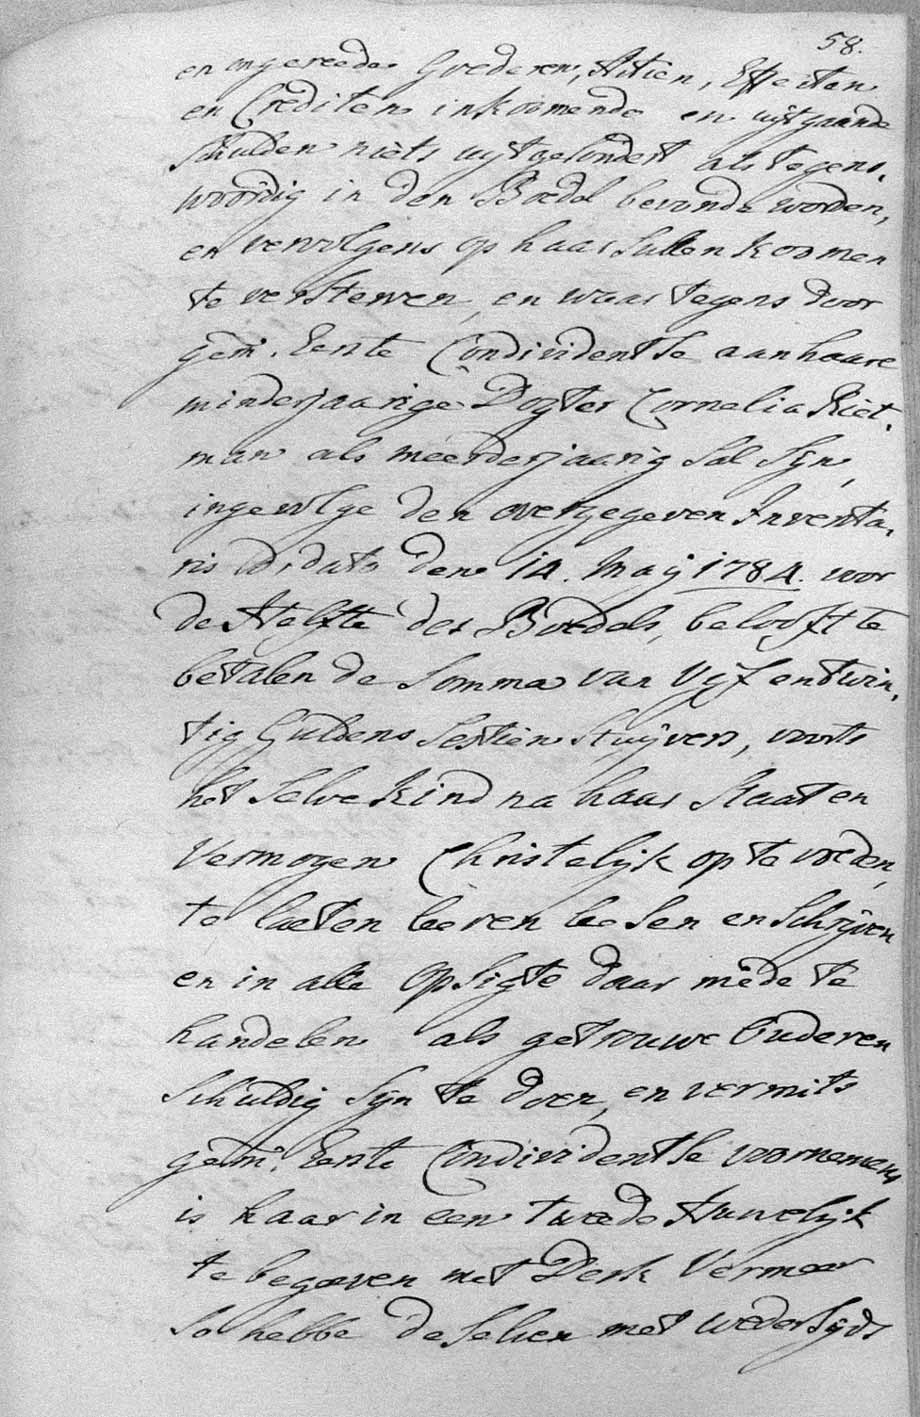 58.
en ongereede Goederen, Actien, Effecten
en Crediten inkoomende en uijtgaande
Schulden niets uijtgesondert als tegens.
woordig in den Boedel bevonde worden,
en vervolgens op haar sullen koomen
te versterven, en waar tegens door
gem. Eerste Condividentse aan haare
minderjaarige Dogter Cornelia Riet.
man als meerderjaarig sal sijn,
ingevolge den overgegeven Inventa.
ris d. dato den 14. Maij 1784. voor
de Helfte des Boedels, belooft te
betalen de Somma van Vijf en twin.
tig Guldens Sestien Stuijvers, voorts
het selve Kind na haar Staat en
Vermogen Christelijk op te voeden,
te laeten leeren leesen en Schrijven
en in alle Opsigte daar mede te
handelen als getrouwe Ouderen
Schuldig sijn te doen, en vermits
gem. Eerste Condividentse voornemens
is haar in een Tweede Huwelijk
te begeeven met Derk Vermeer
So hebbe deselven met wedersijds